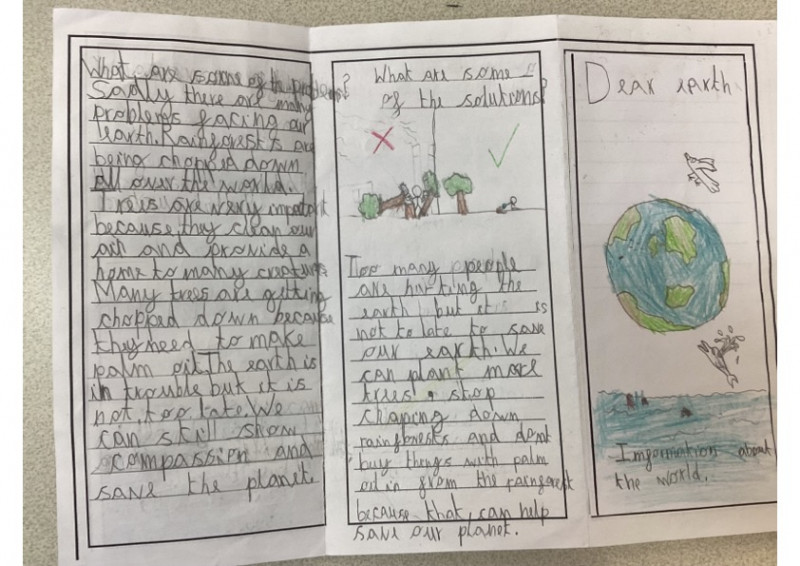 What are some of th problems?
Sadly there are many
problems facing our
earth. Rainforests are
being chopped down
all over the world.
Trees are very important
because they clean our
air and provide a
home to many creatures
Many trees are getting
chopped down because
they need to make
palm oil. The earth is
in trouble but it is
not too late. We
can still show
compassion and
save the planet.
What are some
of the solutions?
Too many people
are hurting the
earth but it is
not to late to save
our earth. We
can plant more
trees, stop
choping down
rainforests and dont
buy things with palm
oil in from the rainforest
because that can help
save our planet.
Dear earth
Imformation about
the world.